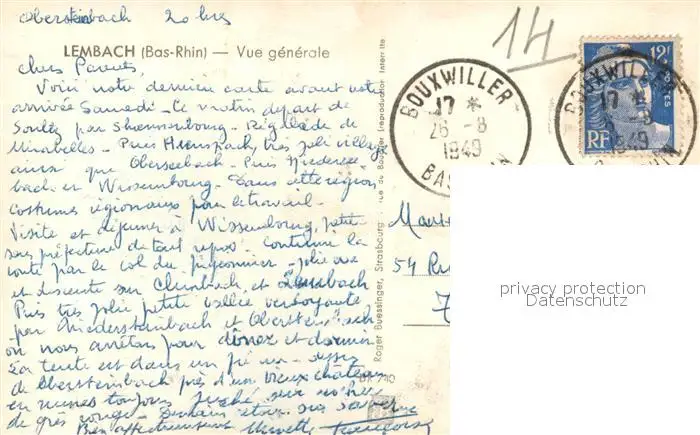 Obersteinbach 20 hres
LEMBACH (Bas-Rhin) — Vue générale
Chers Parents,
Voici notre dernière carte avant notre
arrivée Samedi - Ce matin départ de
Soultz par Shoenenbourg -
Mirabelles - Puis Hunspach, très joli village
ainsi que Oberseebach - Puis Niedersee
bach et Wissembourg - Dans cette région
costumes régionaux pour le travail -
Visite et déjeuner à Wissembourg, petite
sous préfecture de tout repos - Continué la
route par le col du pigeonnier - jolie vue
et descente sur Climbach et Lembach
Puis très jolie petite vallée verdoyante
par Niedersteinbach et Obersteinbach
où nous arrêtons pour dîner et dormir
La tente est dans un pré
de Obersteinbach près d'un vieux château
en ruines toujours perché sur rocher
de grès rouge - Demain
Bien affectueusement
14
BOUXWILLER
17 *
26 - 8
1949
BAS-RHIN
12F
POSTES
RF
BOUXWILLER
17 *
8
1949
RHIN
54 Ru
Roger Buessinger, Strasbourg
reproduction interdite
privacy protection
Datenschutz